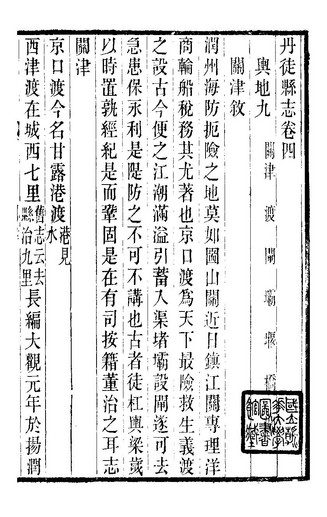 丹徒縣志卷四
輿地九 關津 渡 閘 壩 堰 橋
關津敘
潤州海防扼險之地莫如圌山關近日鎮江關專理洋
商輪船稅務其尤著也京口渡爲天下最險救生義渡
之設古今便之江潮滿溢引蓄入渠堵壩設閘遂可去
急患保永利是隄防之不可不講也古者徒杠輿梁歲
以時置孰經紀是而鞏固是在有司按籍董治之耳志
關津
京口渡今名甘露港渡港見水
西津渡在城西七里舊志云去縣治九里長編大觀元年於揚潤